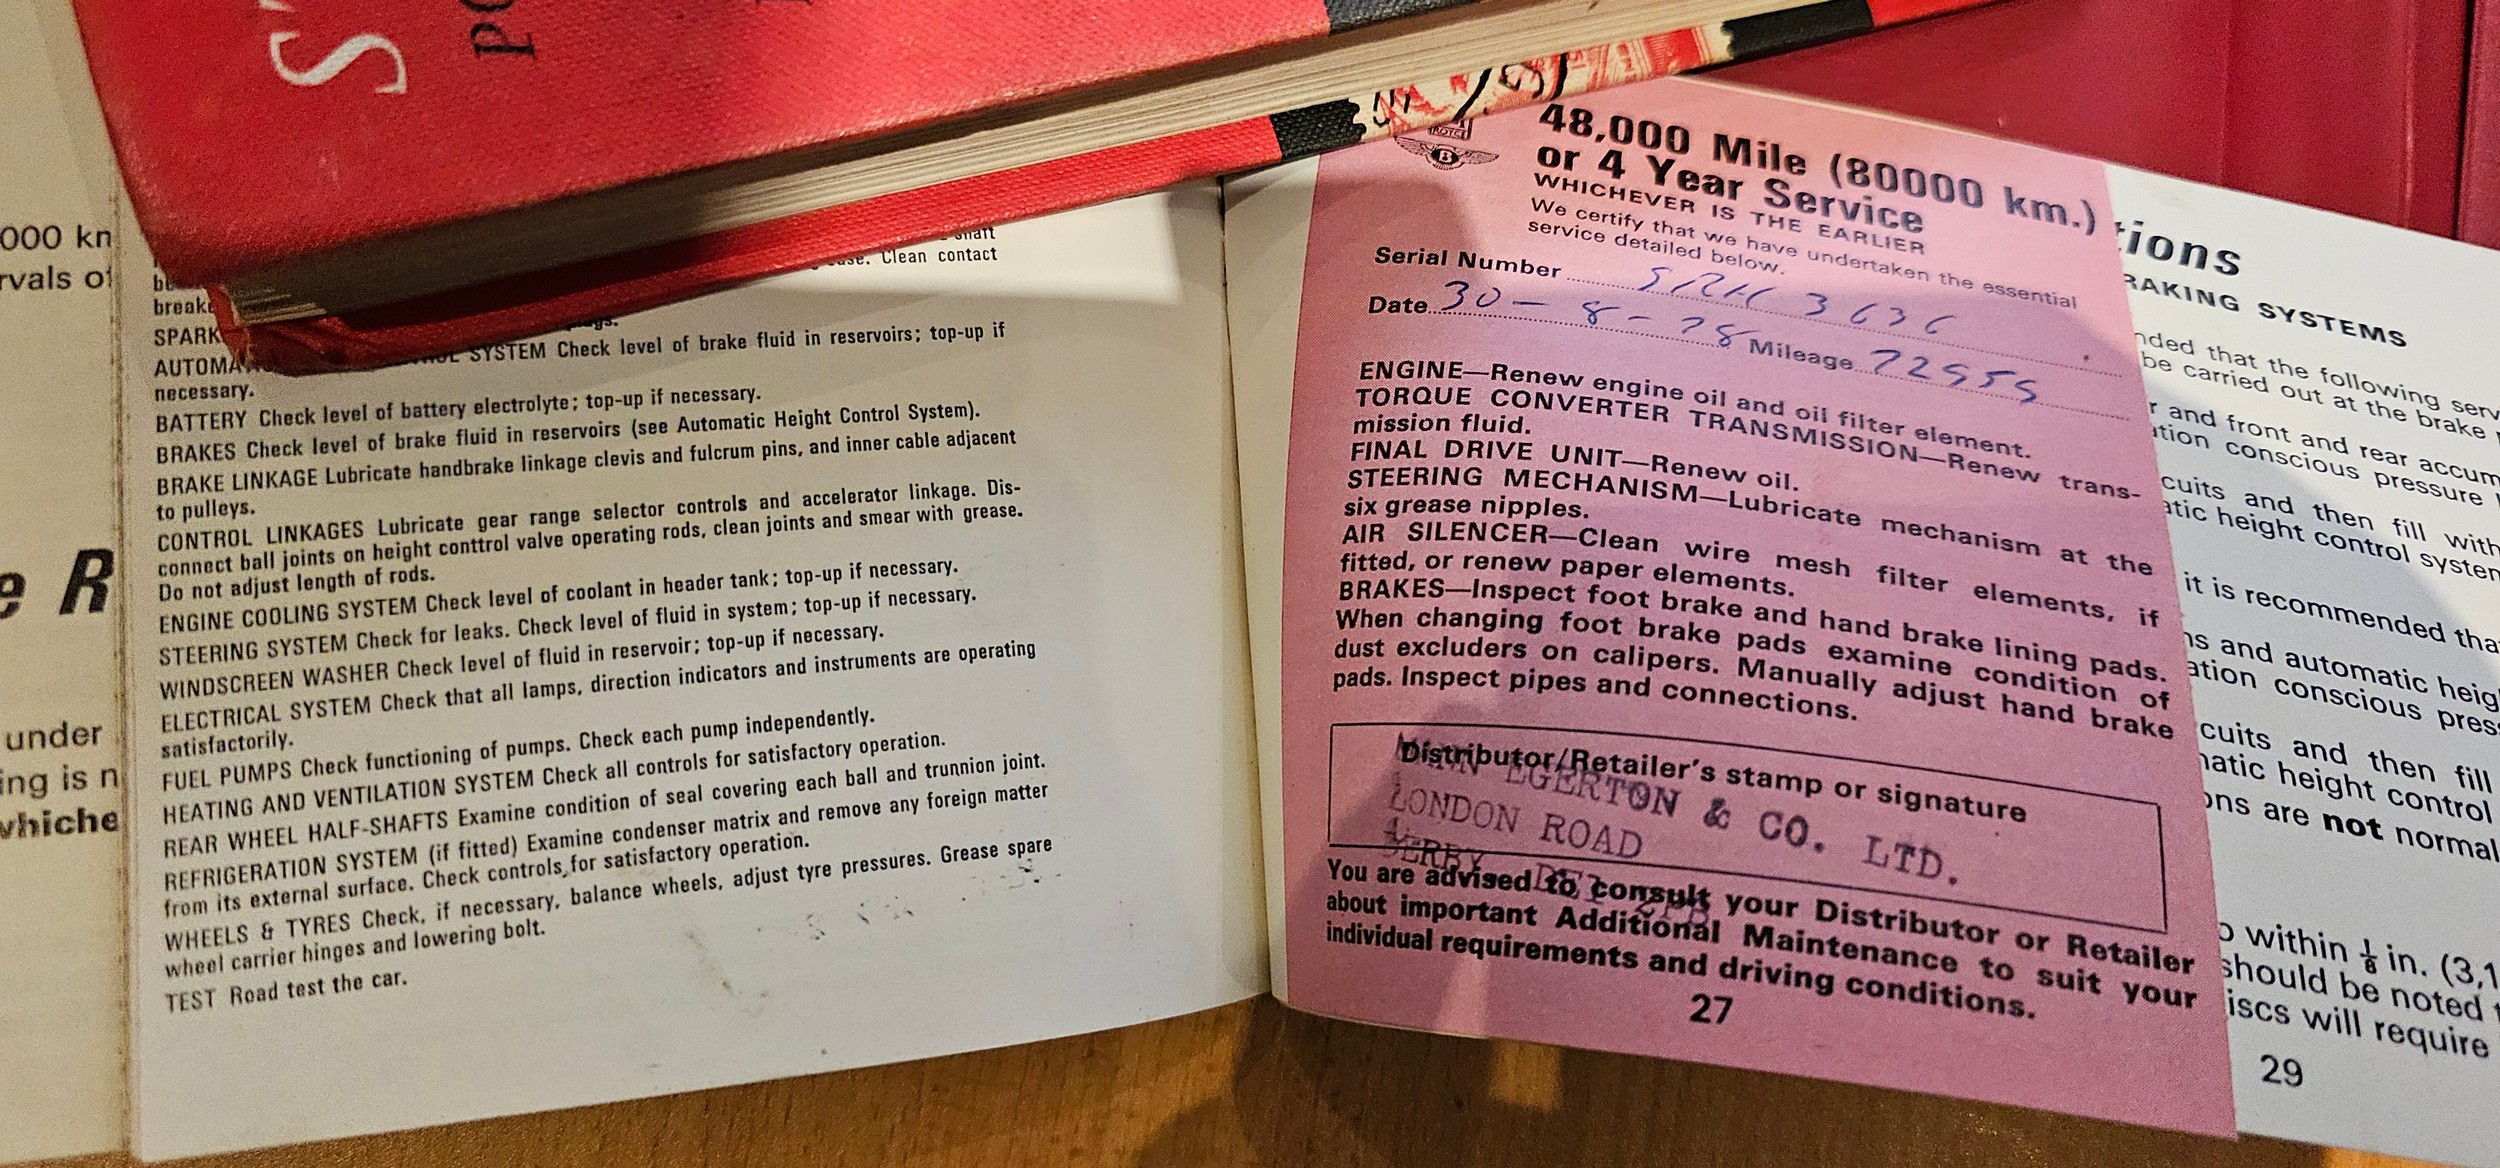 S
po
000 kn
rvals of
e R
under
ing is n
whiche
shaft
Clean contact
break
SPARK
AUTOMA SYSTEM Check level of brake fluid in reservoirs; top-up if
necessary.
BATTERY Check level of battery electrolyte; top-up if necessary.
BRAKES Check level of brake fluid in reservoirs (see Automatic Height Control System).
BRAKE LINKAGE Lubricate handbrake linkage clevis and fulcrum pins, and inner cable adjacent
to pulleys.
CONTROL LINKAGES Lubricate gear range selector controls and accelerator linkage. Dis-
connect ball joints on height conttrol valve operating rods, clean joints and smear with grease.
Do not adjust length of rods.
ENGINE COOLING SYSTEM Check level of coolant in header tank; top-up if necessary.
STEERING SYSTEM Check for leaks. Check level of fluid in system; top-up if necessary.
WINDSCREEN WASHER Check level of fluid in reservoir; top-up if necessary.
ELECTRICAL SYSTEM Check that all lamps, direction indicators and instruments are operating
satisfactorily.
FUEL PUMPS Check functioning of pumps. Check each pump independently.
HEATING AND VENTILATION SYSTEM Check all controls for satisfactory operation.
REAR WHEEL HALF-SHAFTS Examine condition of seal covering each ball and trunnion joint.
REFRIGERATION SYSTEM (if fitted) Examine condenser matrix and remove any foreign matter
from its external surface. Check controls for satisfactory operation.
WHEELS & TYRES Check, if necessary, balance wheels, adjust tyre pressures. Grease spare
wheel carrier hinges and lowering bolt.
TEST Road test the car.
ROYCE
B
48,000 Mile (80000 km.)
or 4 Year Service
WHICHEVER IS THE EARLIER
We certify that we have undertaken the essential
service detailed below.
Serial Number SRH 3636
Date 30-8-78 Mileage 72955
ENGINE—Renew engine oil and oil filter element.
TORQUE CONVERTER TRANSMISSION—Renew trans-
mission fluid.
FINAL DRIVE UNIT—Renew oil.
STEERING MECHANISM—Lubricate mechanism at the
six grease nipples.
AIR SILENCER—Clean wire mesh filter elements, if
fitted, or renew paper elements.
BRAKES—Inspect foot brake and hand brake lining pads.
When changing foot brake pads examine condition of
dust excluders on calipers. Manually adjust hand brake
pads. Inspect pipes and connections.
Distributor/Retailer's stamp or signature
MANN EGERTON & CO. LTD.
LONDON ROAD
DERBY
You are advised to consult your Distributor or Retailer
about important Additional Maintenance to suit your
individual requirements and driving conditions.
27
tions
RAKING SYSTEMS
nded that the following serv
be carried out at the brake
r and front and rear accum
ation conscious pressure
cuits and then fill with
atic height control system
it is recommended tha
ns and automatic heig
ation conscious press
cuits and then fill
natic height control
ons are not normal
o within 1/8 in. (3,1
should be noted
iscs will require
29